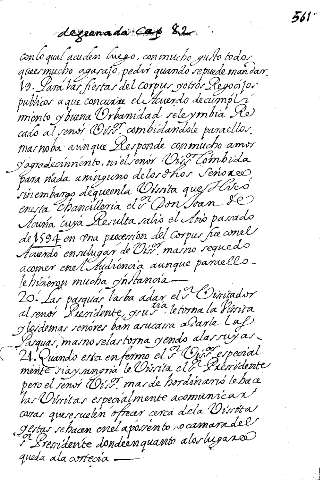 561
de grenada Cap 82
con lo qual acuden luego, con mucho gusto todos
que es mucho agasajo pedir quando se puede mandar
19. Para las fiestas del corpus y otros Regosijos
publicos a que concurre el Acuerdo de cumpli
miento y buena Urbanidad se le ymbia Re
cado al señor Vissr. combidandole para ellos
mas no ba aunque Responde con mucho amor
y agradecimiento, ni el señor Vissr. Combida
para nada a ninguno de los dhos señores
sin embargo de que en la Vissita que Hiço
en esta chancilleria el sr. Don Juan de
Acuña cuya Resulta salio el Año pasado
de 1594 en una procession del Corpus fue con el
Acuerdo en su lugar de Vissr. mas no se quedo
a comer en el Audiencia aunque para ello
le hizieron mucha ynstancia
20. Las pasquas las ba a dar el sr. Vissitador
al señor Presidente, y su sria. le torna la Vissita
y los demas señores ban a su casa a darle Las
Pasquas, mas no se las torna yendo a las suyas
21. Quando esta enfermo el sr. Vissr. especial
mente si ay sangria le Vissita el sr. Pressidente
pero el señor Vissr. mas de hordinario le hace
las Vissitas especialmente a comunicar
cosas que suelen ofrecer cerca de la Vissita
y estas se hacen en el aposento, o camara del
sr. Presidente donde en quanto a los lugares
queda a la cortecia